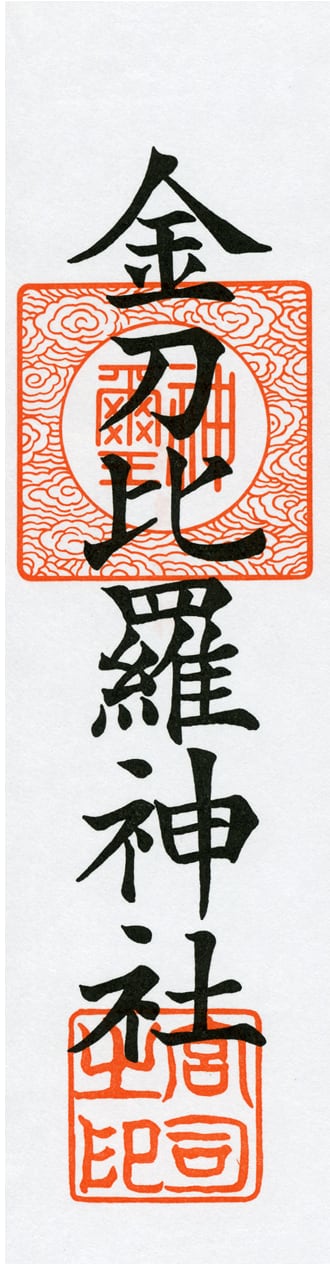 金刀比羅神社
神璽
宮司之印